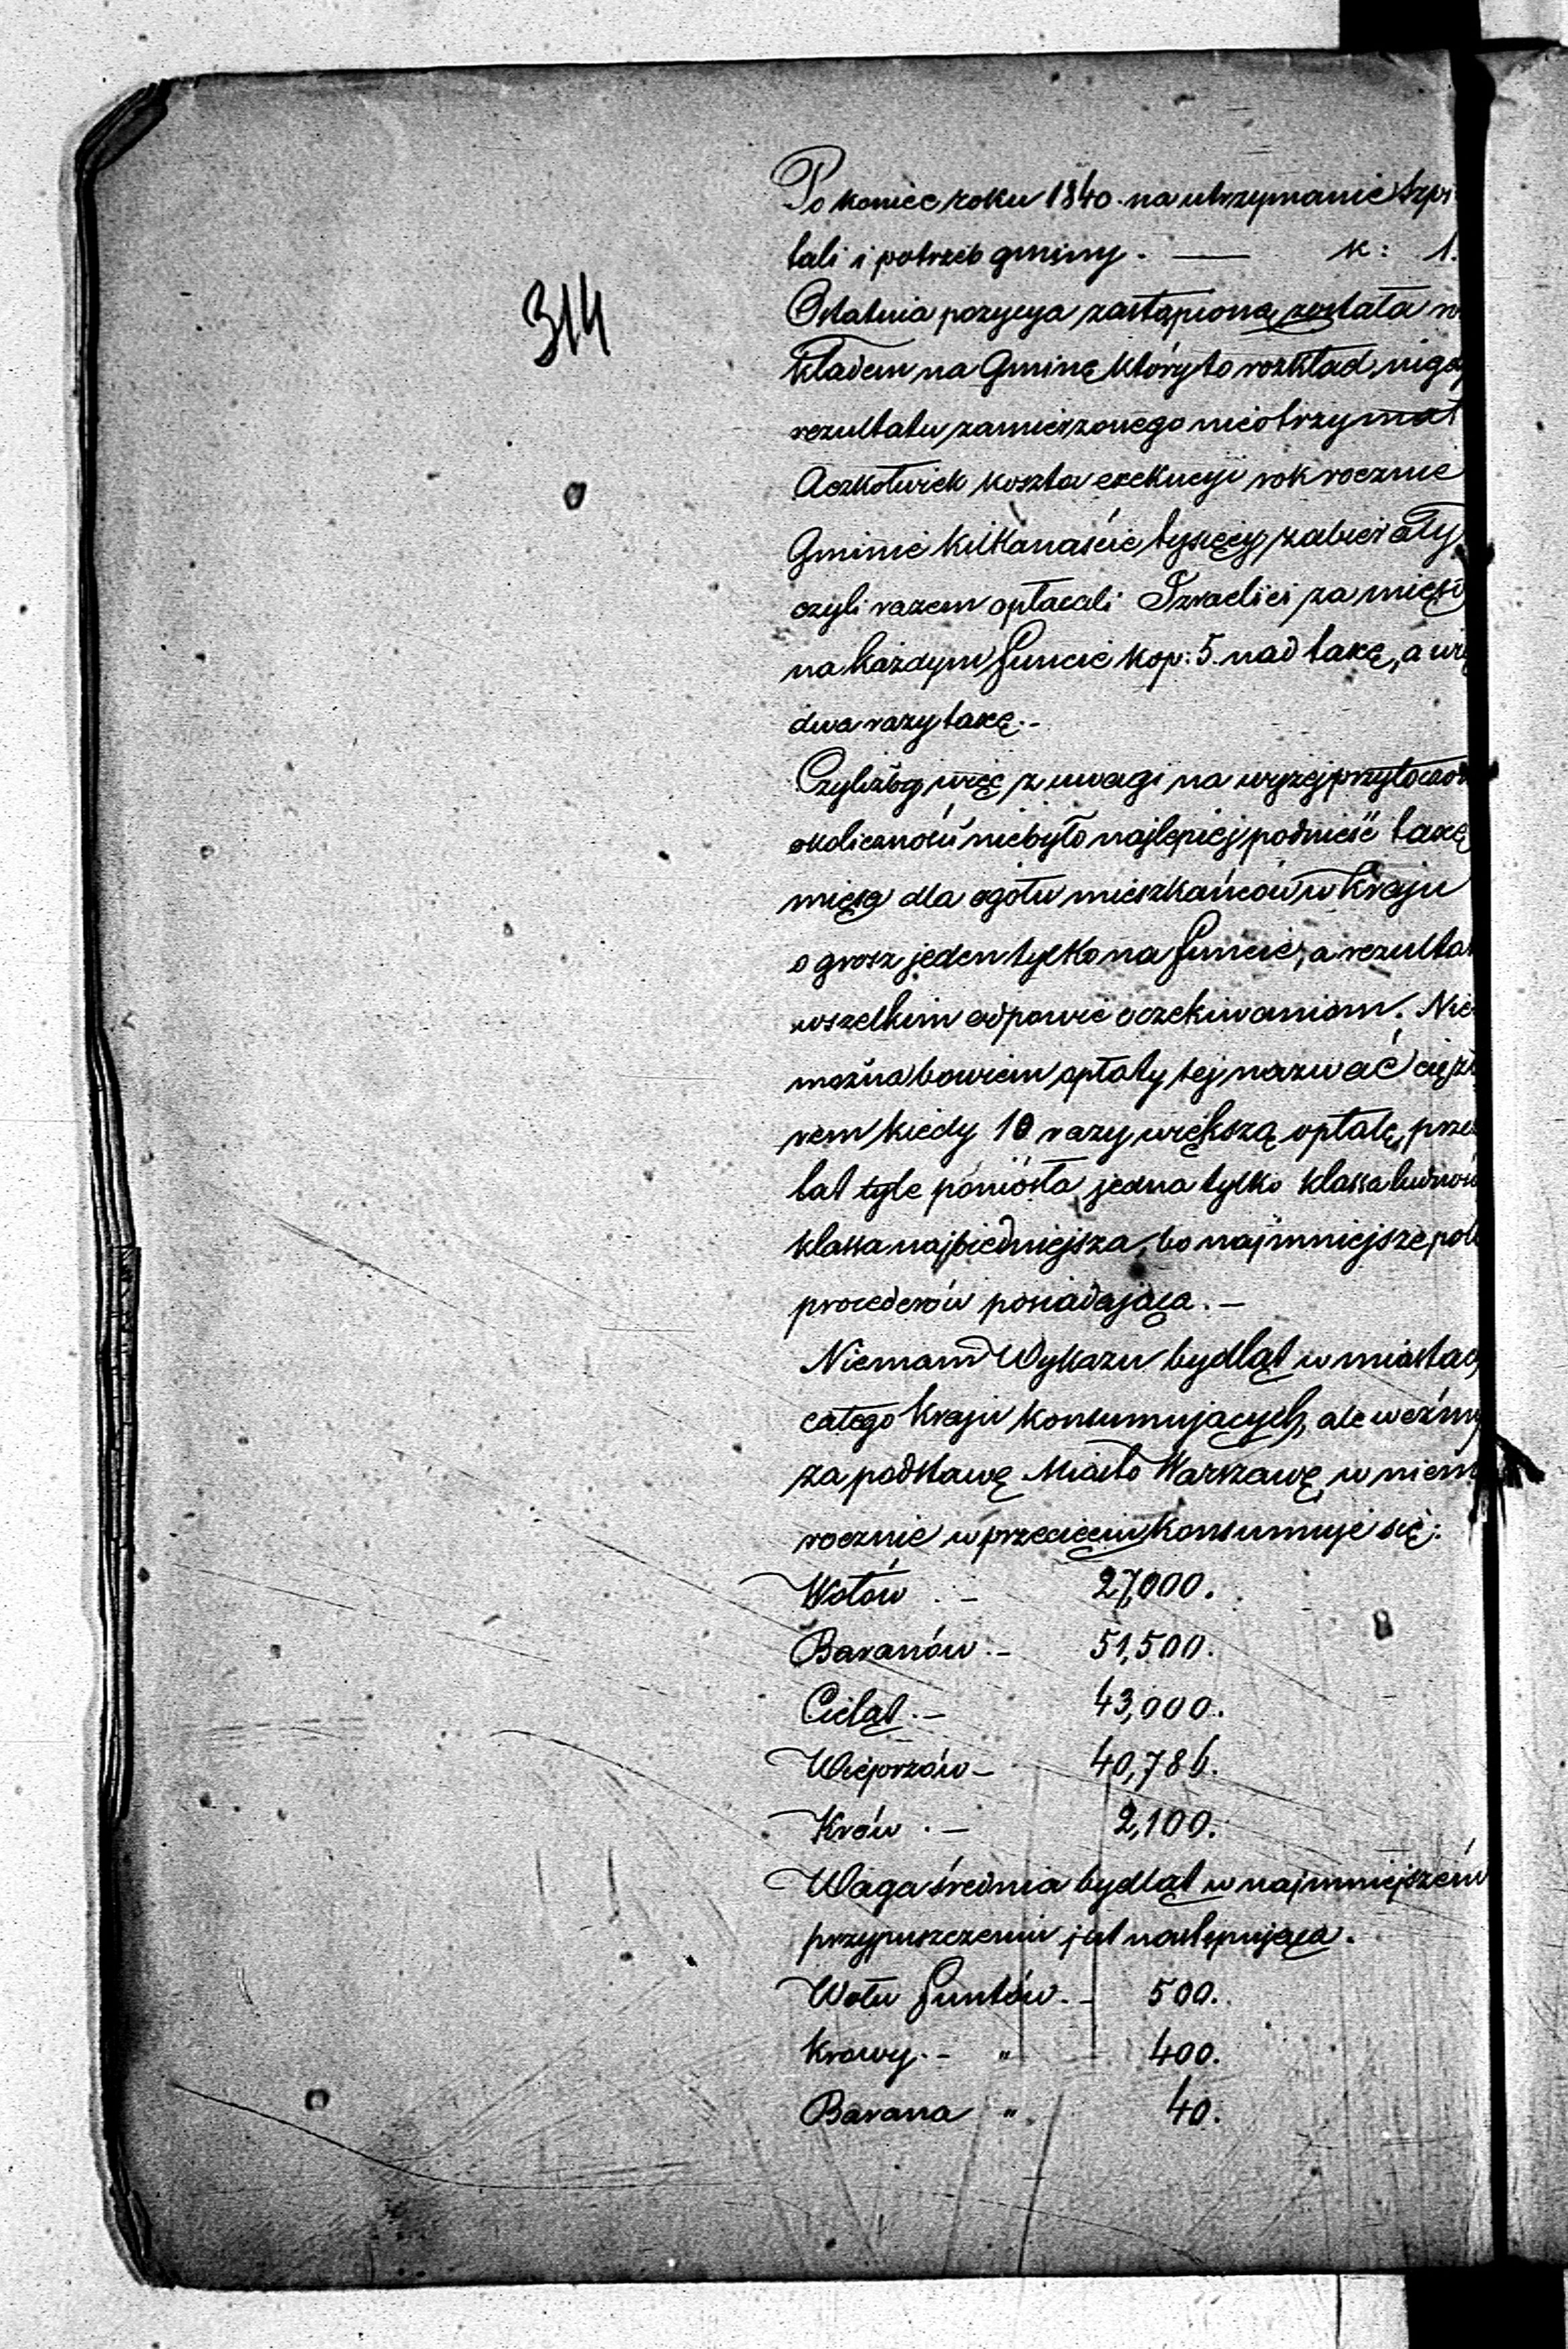 314
Po koniec roku 1840. na utrzymanie Szpi
tali i potrzeb gminy. — k: 1.
Ostatnia pozycya zastąpioną została ro
kładem na Gminę który to rozkład, nigdy
rezultatu zamierzonego nieotrzymał
Aczkolwiek koszta exekucyi rok rocznie
Gminie kilkanaście tysięcy zabierały
czyli razem opłacali Izraelici za mięso
na każdym funcie kop: 5. nad taxę, a wię
dwa razy taxę.-
Czyliżby więc z uwagi na wyżej przytoczon
okoliczność niebyło najlepiej podnieść taxę
mięsa dla ogółu mieszkańców w Kraju
o grosz jeden tylko na funcie, a rezultat
wszelkim odpowie oczekiwaniom. Nie
można bowiem opłaty tej nazwać cięża
rem kiedy 10 razy większą opłatę, prze
lat tyle poniosła jedna tylko klassa ludnoś
klassa najbiedniejsza, bo najmniejsze pole
procederów posiadająca. —
Niemam Wykazu bydląt w miastach
całego Kraju konsumujących, ale weźmy
za podstawę Miasto Warszawę, w niem
rocznie w przecięciu konsumuje się:
Wołów . — 27,000.
Baranów. — 51,500.
Cieląt. — 43,000.
Wieprzów — 40,786.
Krów . — 2,100.
Waga średnia bydląt w najmniejszém
przypuszczeniu jest następująca.
Wołu funtów. — 500.
Krowy. — " 400.
Barana " 40.